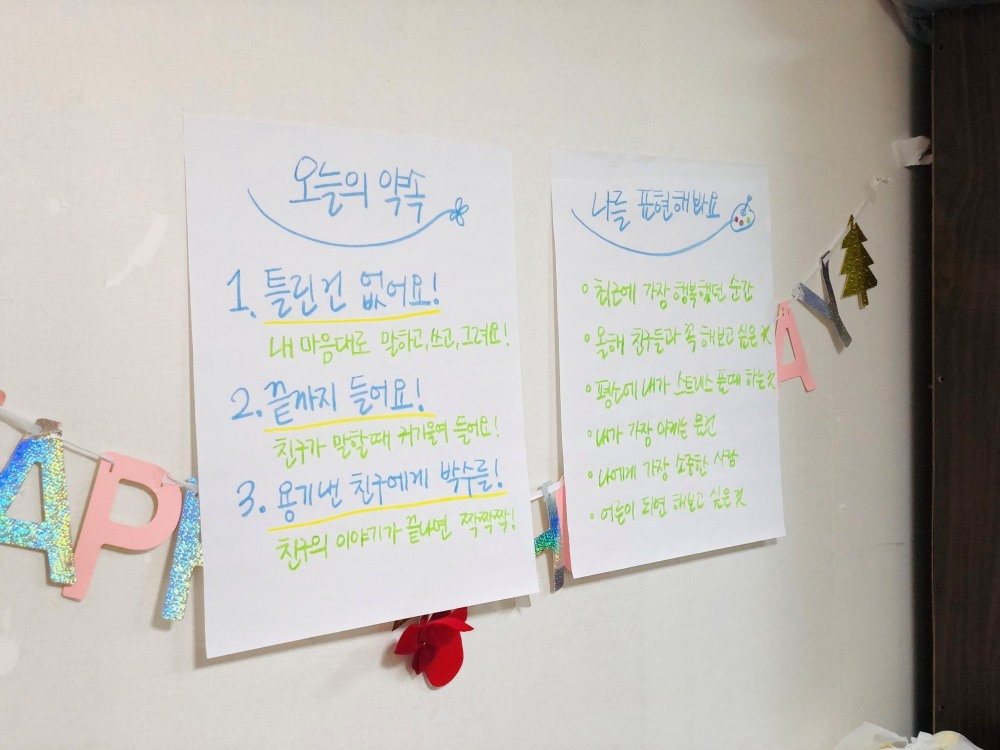 오늘의 약속
1. 틀린건 없어요!
내 마음대로 말하고, 쓰고, 그려요!
2. 끝까지 들어요!
친구가 말할때 귀기울여 들어요!
3. 용기낸 친구에게 박수를!
친구의 이야기가 끝나면 짝짝짝!
나를 표현해봐요
• 최근에 가장 행복했던 순간
• 올해 친구들과 꼭 해보고 싶은 것
• 평소에 내가 스트레스 풀때 하는 것
• 내가 가장 아끼는 물건
• 나에게 가장 소중한 사람
• 어른이 되면 해보고 싶은 것
AP
H
AY